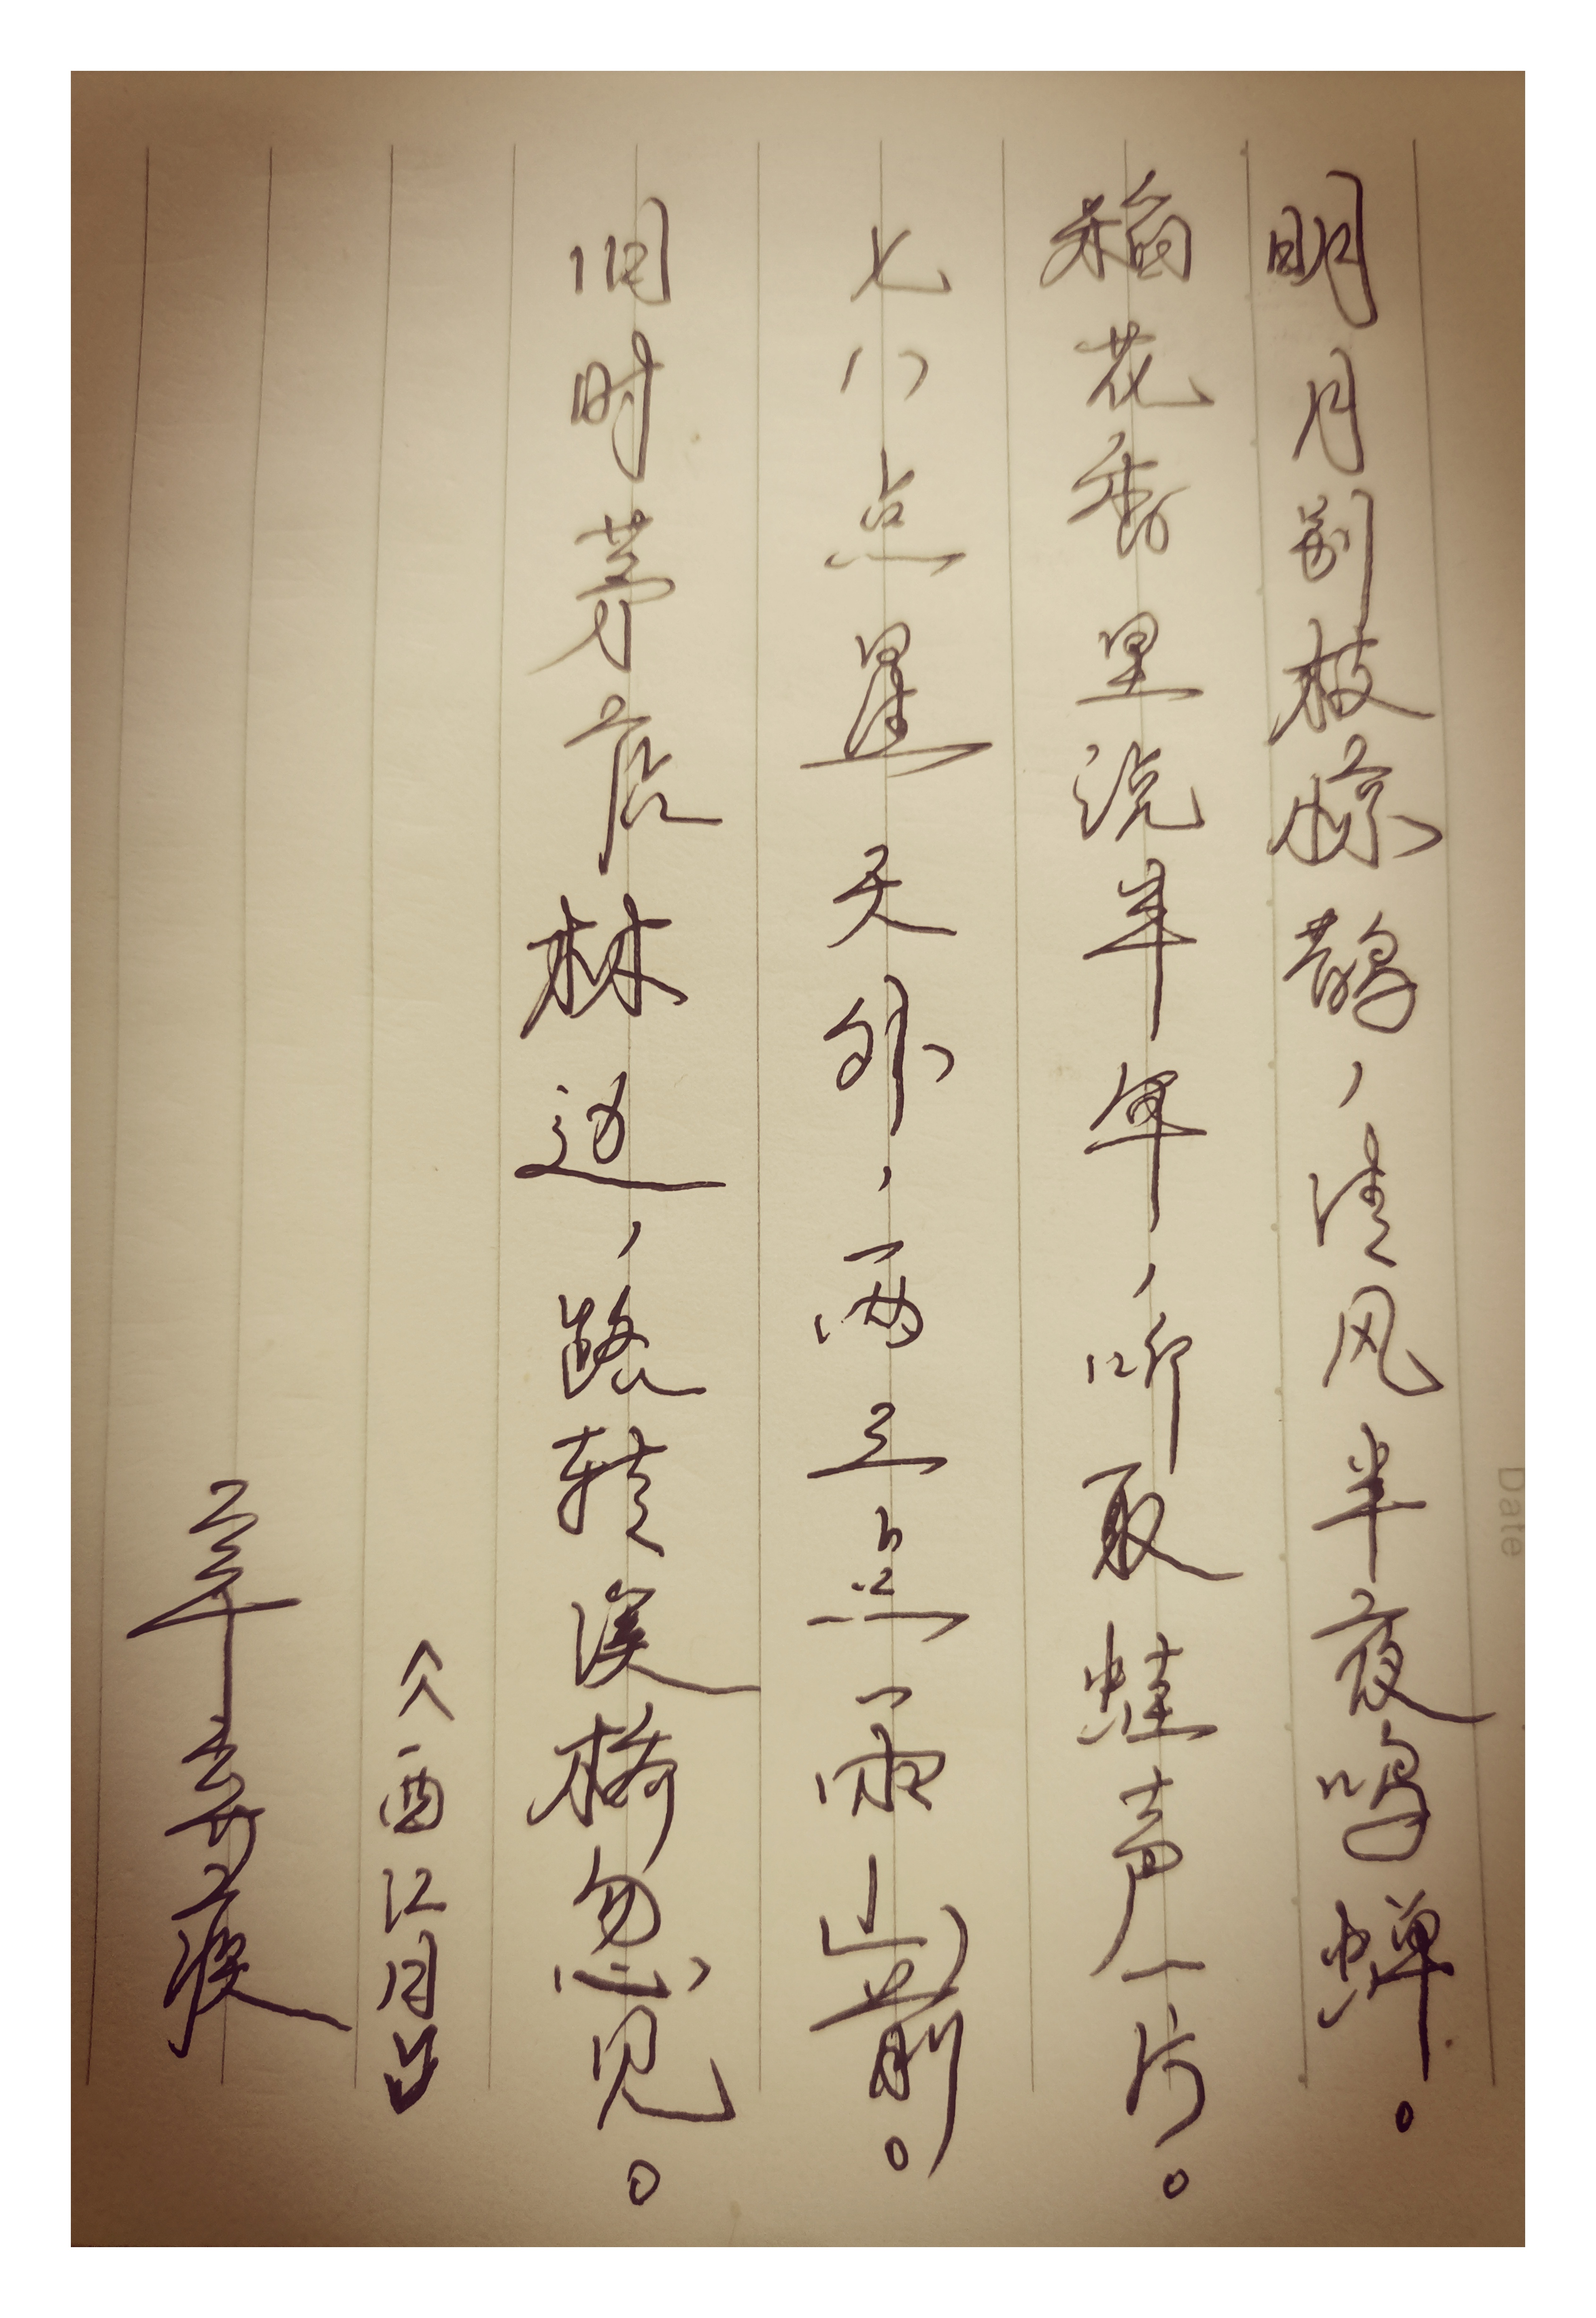 明月别枝惊鹊，清风半夜鸣蝉。
稻花香里说丰年，听取蛙声一片。
七八点星天外，两三点雨山前。
旧时茅店林边，路转溪桥忽见。
《西江月》
辛弃疾
Date